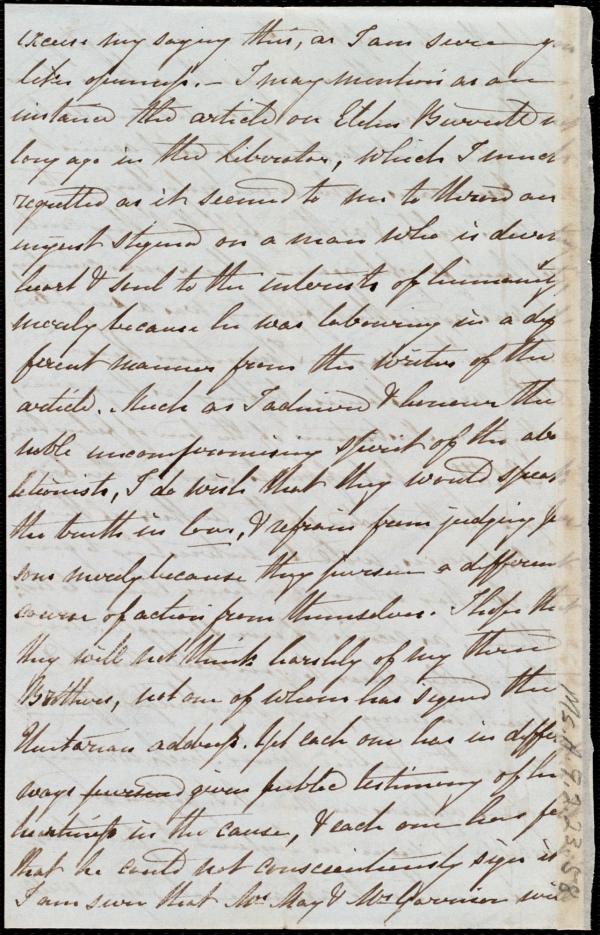 excuse my saying this, as I am sure you
likes openness. – I may mention as an
instance the article on Elihu Burritt
long ago in the Liberator, which I much
regretted as it seemed to me to throw an
unjust stigma on a man who is devoted
heart & soul to the interests of humanity
merely because he was labouring in a dif
ferent manner from the writer of the
article. Much as I admire & honour the
noble uncompromising spirit of the abo
litionists, I do wish that they would speak
the truth in love, & refrain from judging per
sons merely because they pursue a different
course of action from themselves. I hope that
they will not think harshly of my three
Brothers, not one of whom has signed the
Unitarian address. Yet each one has in differ
ways pursued given public testimony of his
heartiness in the cause, & each one has fe
that he could not conscientiously sign it
I am sure that Mr. May & Mr. Garrison will
Ms. A. 9. 2. 23. 58